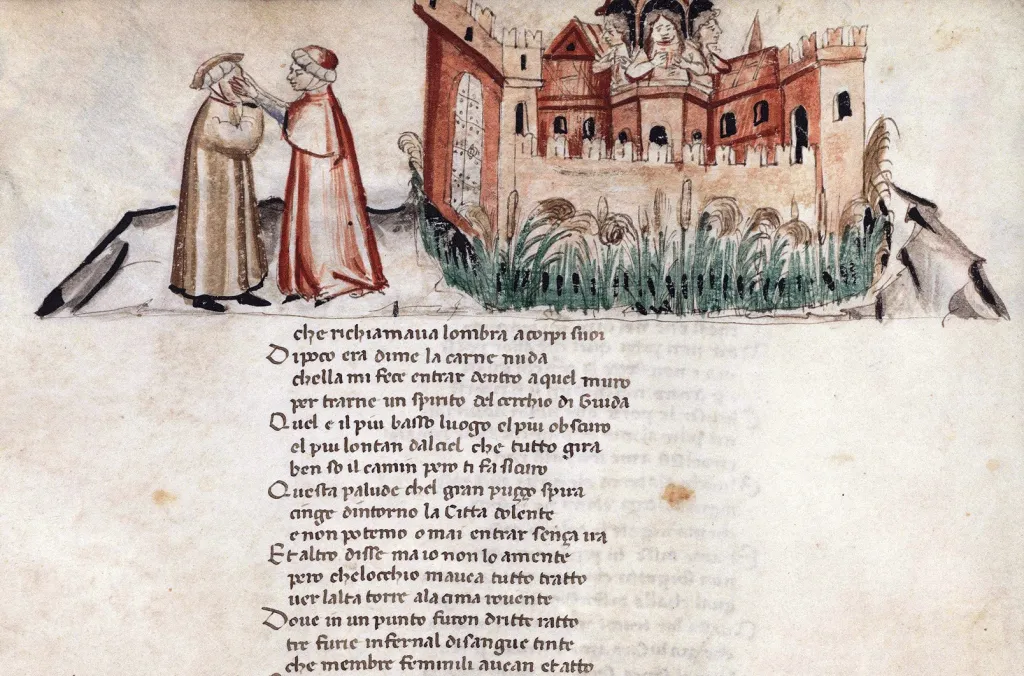 che richiamaua lombra acorpi suoi
Dipoco era dime la carne nuda
chella mi fece entrar dentro aquel muro
per trarne un spirito del cerchio di Giuda
Quel e il piu basso luogo el piu obscuro
el piu lontan dalciel che tutto gira
ben so il camin pero ti fa sicuro
Questa palude chel gran puzzo spira
cinge dintorno la Citta dolente
e non potemo omai entrar senza ira
Et altro disse ma io non lo amente
pero chelocchio mauea tutto tratto
uer lalta torre ala cima rouente
Doue in un punto furon dritte ratto
tre furie infernal disangue tinte
che membre feminili auean et atto